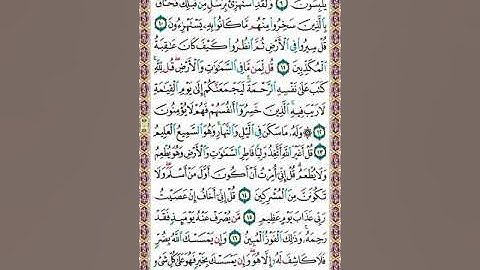 يَلْبِسُونَ ٩ وَلَقَدِ ٱسْتُهْزِئَ بِرُسُلٍ مِّن قَبْلِكَ فَحَاقَ
بِٱلَّذِينَ سَخِرُوا۟ مِنْهُم مَّا كَانُوا۟ بِهِۦ يَسْتَهْزِءُونَ ١٠
قُلْ سِيرُوا۟ فِى ٱلْأَرْضِ ثُمَّ ٱنظُرُوا۟ كَيْفَ كَانَ عَٰقِبَةُ
ٱلْمُكَذِّبِينَ ١١ قُل لِّمَن مَّا فِى ٱلسَّمَٰوَٰتِ وَٱلْأَرْضِ ۖ قُل لِّلَّهِ ۚ
كَتَبَ عَلَىٰ نَفْسِهِ ٱلرَّحْمَةَ ۚ لَيَجْمَعَنَّكُمْ إِلَىٰ يَوْمِ ٱلْقِيَٰمَةِ
لَا رَيْبَ فِيهِ ۚ ٱلَّذِينَ خَسِرُوٓا۟ أَنفُسَهُمْ فَهُمْ لَا يُؤْمِنُونَ
١٢ ۞ وَلَهُۥ مَا سَكَنَ فِى ٱلَّيْلِ وَٱلنَّهَارِ ۚ وَهُوَ ٱلسَّمِيعُ ٱلْعَلِيمُ
١٣ قُلْ أَغَيْرَ ٱللَّهِ أَتَّخِذُ وَلِيًّا فَاطِرِ ٱلسَّمَٰوَٰتِ وَٱلْأَرْضِ وَهُوَ يُطْعِمُ
وَلَا يُطْعَمُ ۗ قُلْ إِنِّىٓ أُمِرْتُ أَنْ أَكُونَ أَوَّلَ مَنْ أَسْلَمَ ۖ وَلَا
تَكُونَنَّ مِنَ ٱلْمُشْرِكِينَ ١٤ قُلْ إِنِّىٓ أَخَافُ إِنْ عَصَيْتُ
رَبِّى عَذَابَ يَوْمٍ عَظِيمٍ ١٥ مَّن يُصْرَفْ عَنْهُ يَوْمَئِذٍ فَقَدْ
رَحِمَهُۥ ۚ وَذَٰلِكَ ٱلْفَوْزُ ٱلْمُبِينُ ١٦ وَإِن يَمْسَسْكَ ٱللَّهُ بِضُرٍّ
فَلَا كَاشِفَ لَهُۥٓ إِلَّا هُوَ ۖ وَإِن يَمْسَسْكَ بِخَيْرٍ فَهُوَ عَلَىٰ كُلِّ شَىْءٍ